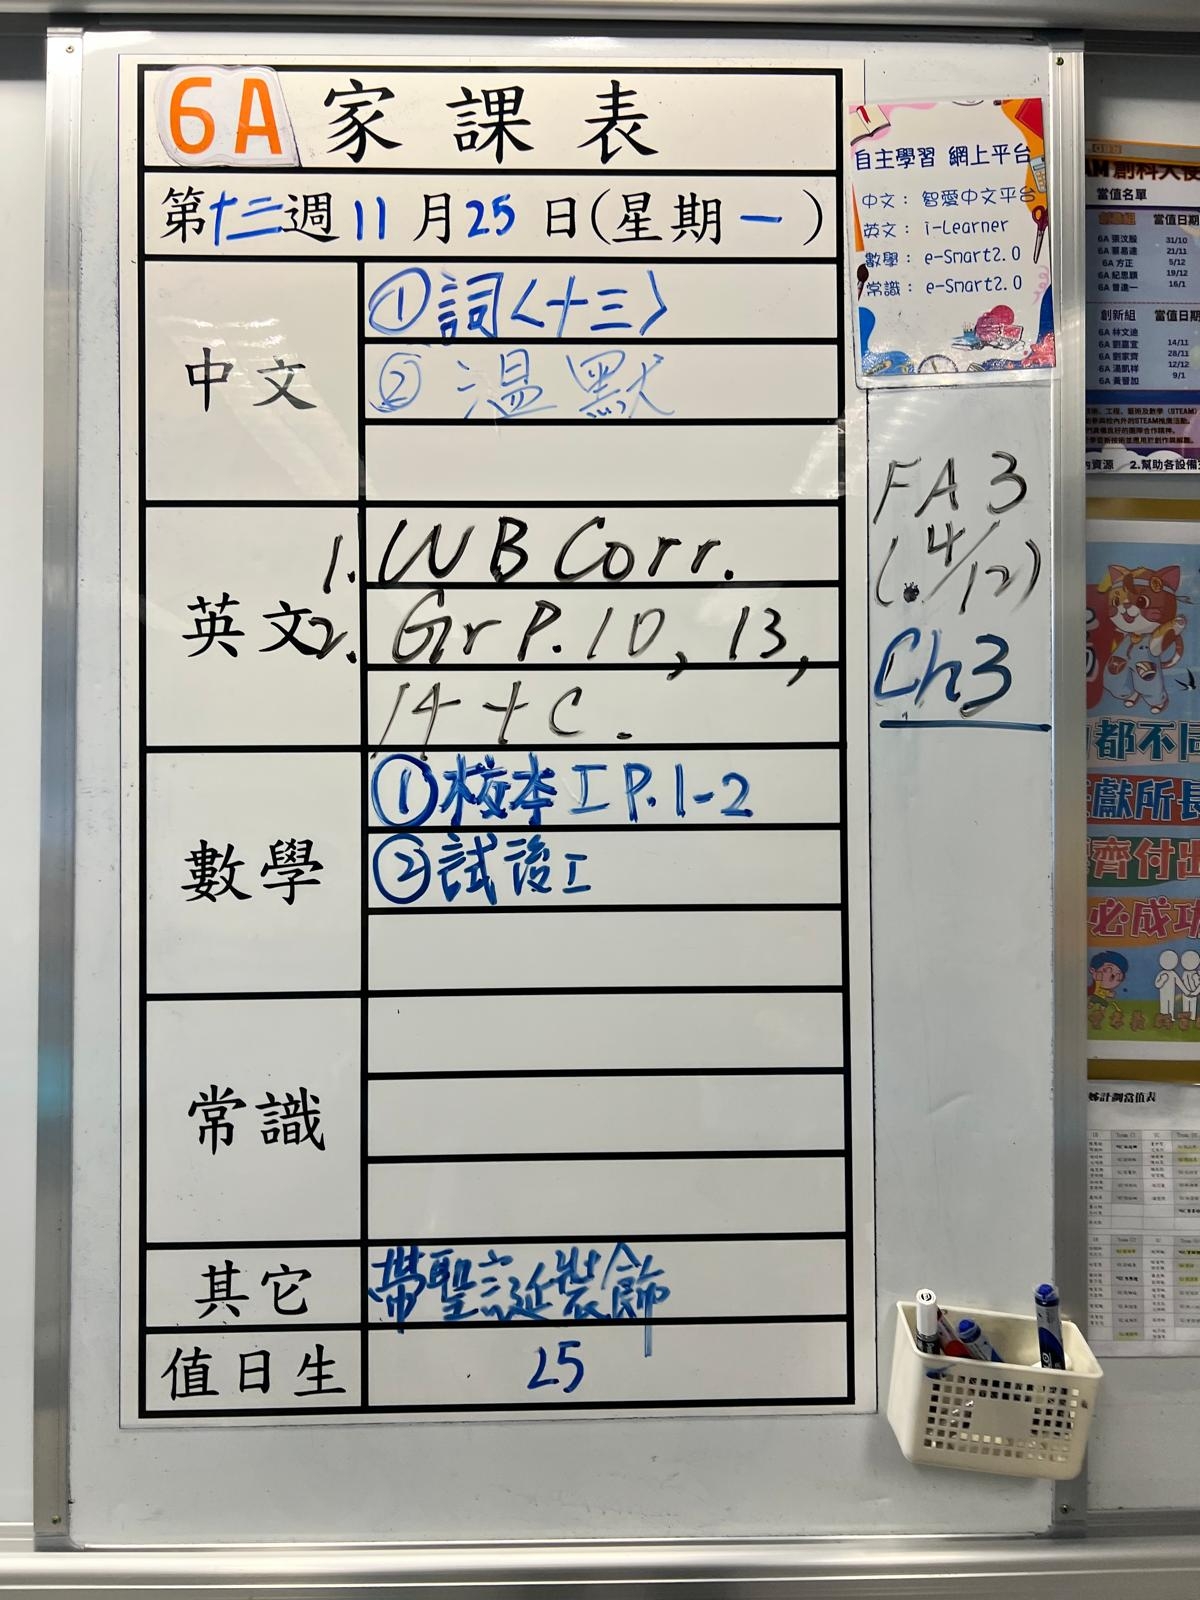 6A 家課表
第十三週11月25日(星期一)
中文
①詞〈十三〉
②溫默
英文
1. WB Corr.
2. Gr P.10, 13,
14 + C.
數學
①校本工P.1-2
②試後工
常識
其它
帶聖誕裝飾
值日生
25
自主學習 網上平台
中文：智愛中文平台
英文：i-Learner
數學：e-Smart2.0
常識：e-Smart2.0
FA3
(4/12)
Ch3
創科大使
當值名單
當值日期
6A 張汶殷 31/10
6A 蔡易達 21/11
6A 方正 5/12
6A 紀思穎 19/12
6A 曾進一 16/1
創新組 當值日期
6A 林文迪
6A 劉嘉宜 14/11
6A 劉家齊 28/11
6A 湯凱祥 12/12
6A 黃晉加 9/1
2.幫助各設備
都不同
獻所長
齊付出
必成功
計劃當值表